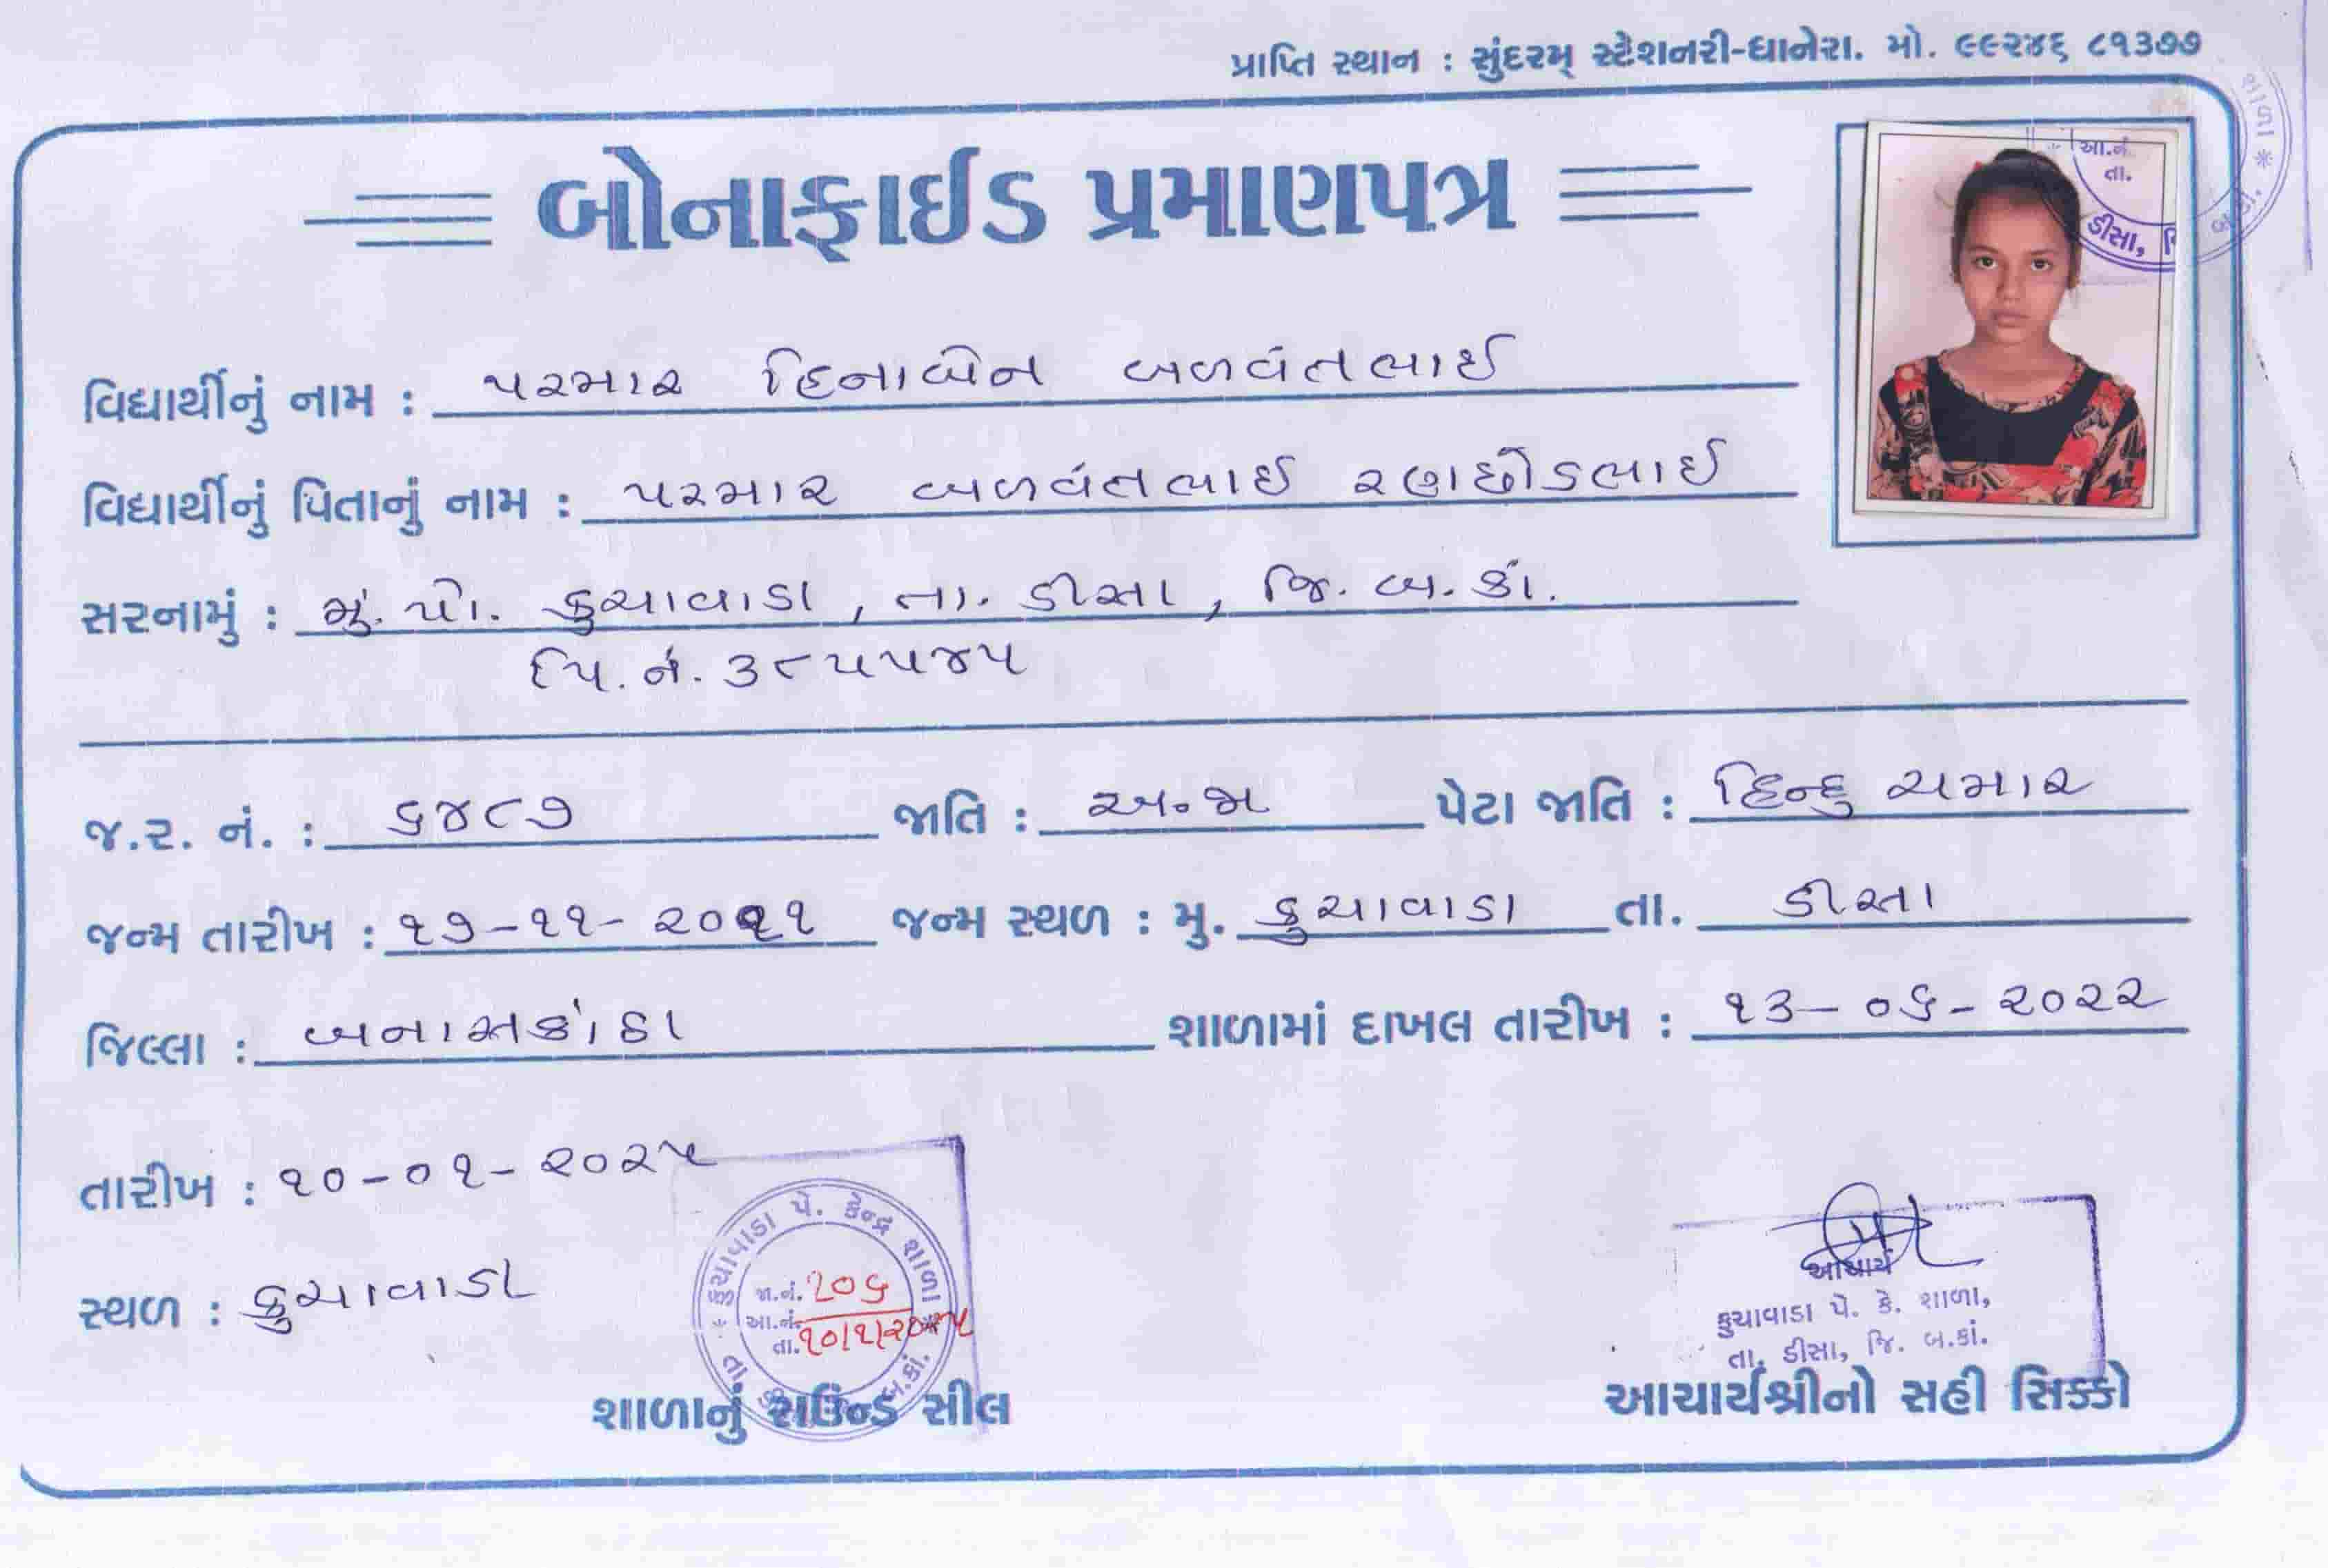 પ્રાપ્તિ સ્થાન : સુંદરમ્ સ્ટેશનરી-ધાનેરા. મો. ૯૯૨૪૬ ૮૧૩૭૭
બોનાફાઈડ પ્રમાણપત્ર
આ.નં.
તા.
ડીસા,
શાળા *
વિદ્યાર્થીનું નામ : પરમાર હિનાબેન બળવંતભાઈ
વિદ્યાર્થીનું પિતાનું નામ : પરમાર બળવંતભાઈ રણછોડભાઈ
સરનામું : મું. પો. કુચાવાડા, તા. ડીસા, જિ. બ. કાં.
પિ. નં. ૩૮૫૫૪૫
જ.ર. નં. : ૬૪૮૭ જાતિ : અ.જા પેટા જાતિ : હિન્દુ ચમાર
જન્મ તારીખ : ૧૭-૧૧- જન્મ સ્થળ : મુ. કુચાવાડા તા. ડીસા
જિલ્લા : બનાસકાંઠા શાળામાં દાખલ તારીખ : ૧૩-૦૬-૨૦૨૨
તારીખ : ૧૦-૦૧-૨૦૨૫
સ્થળ : કુચાવાડા
કુચાવાડા પે. કેન્દ્ર શાળા * તા. બ.કાં. *
જા.નં. ૨૦૬
આ.નં.
તા. ૧૦/૧/૨૦૨૫
શાળાનું રાઉન્ડ સીલ
આચાર્ય
કુચાવાડા પે. કે. શાળા,
તા. ડીસા, જિ. બ.કાં.
આચાર્યશ્રીનો સહી સિક્કો